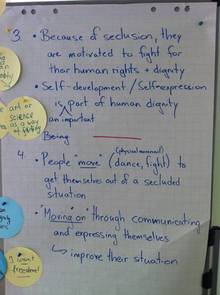 3. • Because of seclusion, they
are motivated to fight for
their human rights + dignity
• Self-development / Self-expression
is part of human dignity
an important
Being
4. (physical movement)
• People move (dance, fight) to
get themselves out of a secluded
situation
• "Moving on" through communicating
and expressing themselves
↳ improve their situation
art or
science
as a way
I want
freedom!